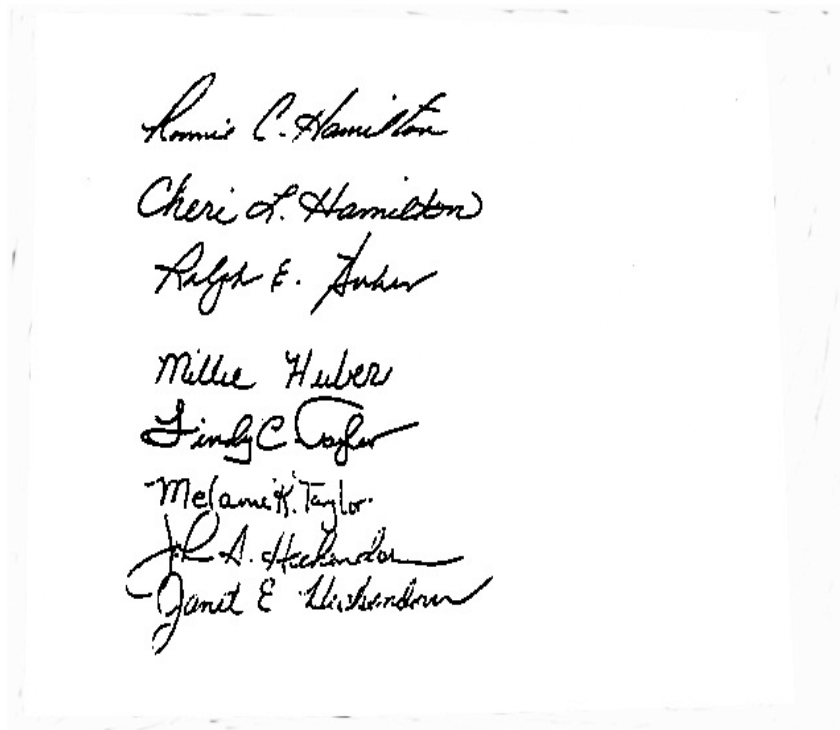 Ronnie C. Hamilton
Cheri L. Hamilton
Ralph E. Huber
Millie Huber
Lindy C. Taylor
Melanie K. Taylor
John A. Heckendorn
Janet E Heckendorn